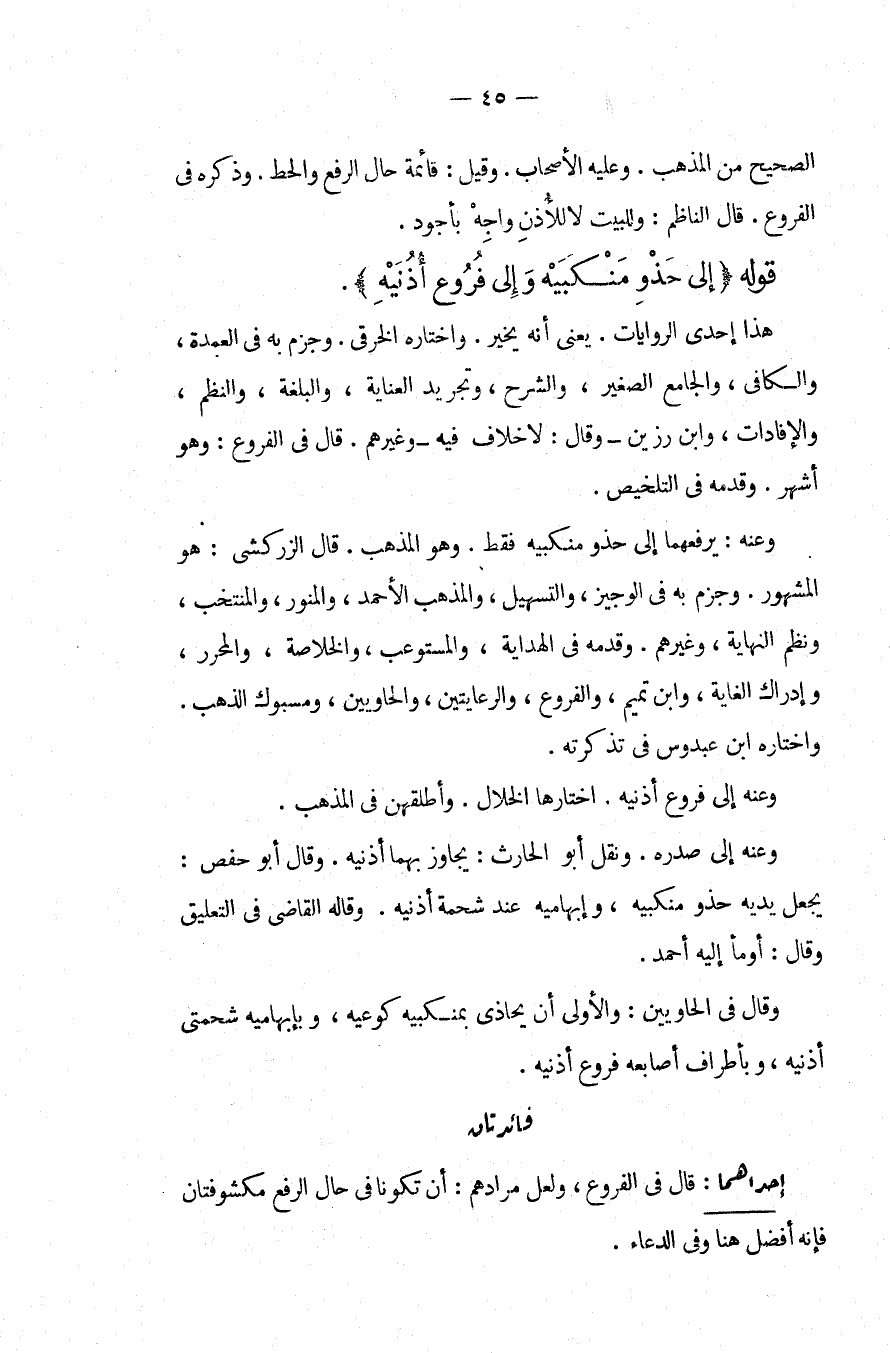 — ٤٥ —
الصحيح من المذهب . وعليه الأصحاب . وقيل : قائمة حال الرفع والحط . وذكره فى
الفروع . قال الناظم : وللبيت لا للأُذنِ واجِهْ بأجود .
قوله ﴿ إلى حَذْوِ مَنْـكَبَيْه وَ إِلى فُرُوع أُذُنَيْهِ ﴾ .
هذا إحدى الروايات . يعنى أنه يخير . واختاره الخرقى . وجزم به فى العمدة ،
والـكافى ، والجامع الصغير ، والشرح ، وتجريد العناية ، والبلغة ، والنظم ،
والإفادات ، وابن رزين ــ وقال : لاخلاف فيه ــ وغيرهم . قال فى الفروع : وهو
أشهر . وقدمه فى التلخيص .
وعنه : يرفعهما إلى حذو منكبيه فقط . وهو المذهب . قال الزركشى : هو
المشهور . وجزم به فى الوجيز ، والتسهيل ، والمذهب الأحمد ، والمنور ، والمنتخب ،
ونظم النهاية ، وغيرهم . وقدمه فى الهداية ، والمستوعب ، والخلاصة ، والمحرر ،
و إدراك الغاية ، وابن تميم ، والفروع ، والرعايتين ، والحاويين ، ومسبوك الذهب .
واختاره ابن عبدوس فى تذكرته .
وعنه إلى فروع أذنيه . اختارها الخلال . وأطلقهن فى المذهب .
وعنه إلى صدره . ونقل أبو الحارث : يجاوز بهما أذنيه . وقال أبو حفص :
يجعل يديه حذو منكبيه ، و إبهاميه عند شحمة أذنيه . وقاله القاضى فى التعليق
وقال : أومأ إليه أحمد .
وقال فى الحاويين : والأولى أن يحاذى بمنـكبيه كوعيه ، و بإبهاميه شحمتى
أذنيه ، و بأطراف أصابعه فروع أذنيه .
فائدتان
إحداهما : قال فى الفروع ، ولعل مرادهم : أن تكونا فى حال الرفع مكشوفتان
فإنه أفضل هنا وفى الدعاء .